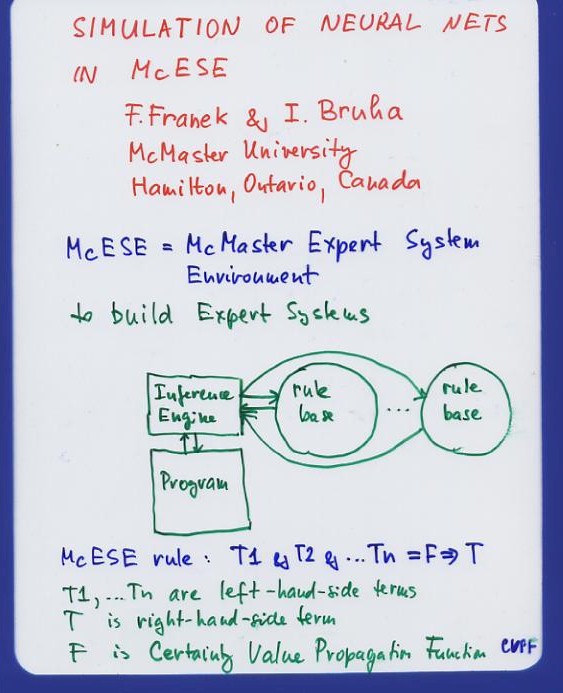 SIMULATION OF NEURAL NETS
IN McESE
F. Franek & I. Bruha
McMaster University
Hamilton, Ontario, Canada
McESE = McMaster Expert System
Environment
to build Expert Systems
Inference
Engine
rule
base
...
rule
base
Program
McESE rule : T1 & T2 & ... Tn =F⇒ T
T1, ... Tn are left-hand-side terms
T is right-hand-side term
F is Certainty Value Propagation Function CVPF